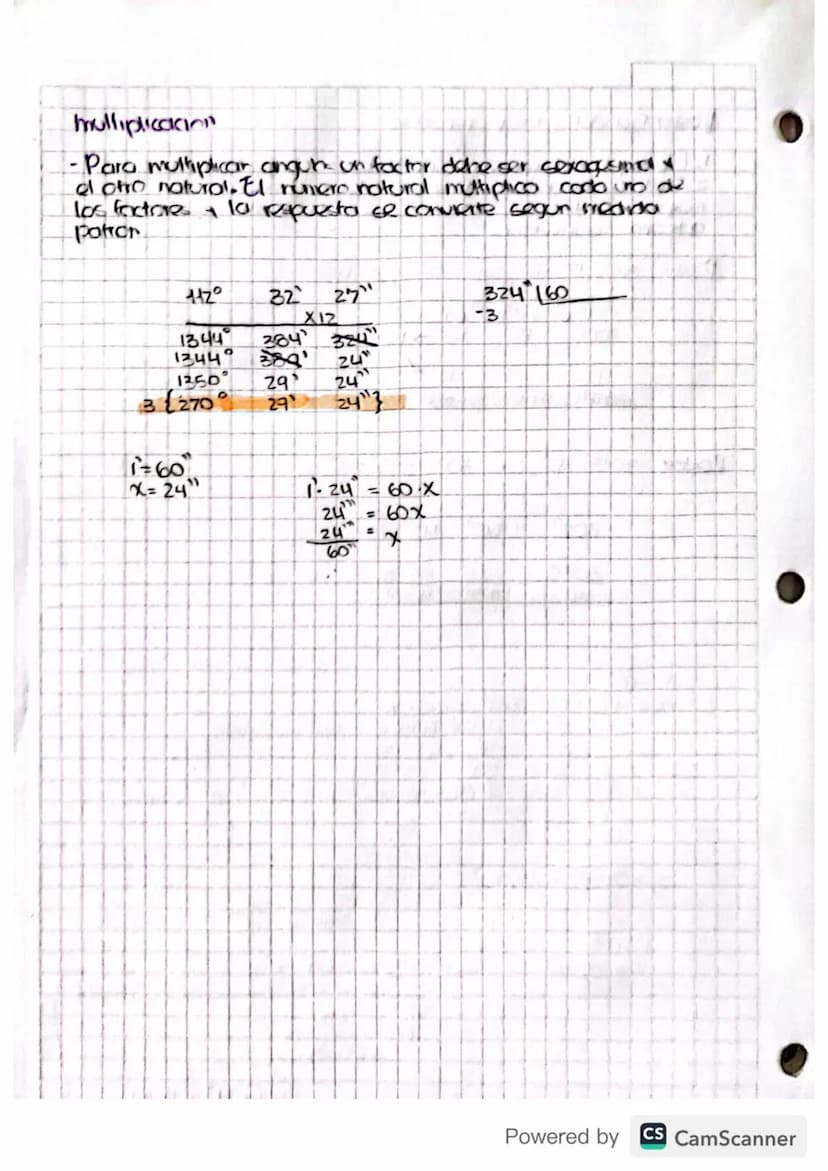 multiplicacion
- Para multiplicar angulo un factor debe ser sexagesimal y
el otro natural. El numero natural multiplica cada uno de
los factores y la respuesta se convierte segun medida
patron
112° 32' 27''
X12
1344° 384' 324''
1344° 389' 24''
1350° 29' 24''
3 { 270° 29' 24'' }
324'' 60
-3
1'= 60''
x= 24''
1'. 24'' = 60.x
24''' = 60x
24''' = x
60''
Powered by CS CamScanner